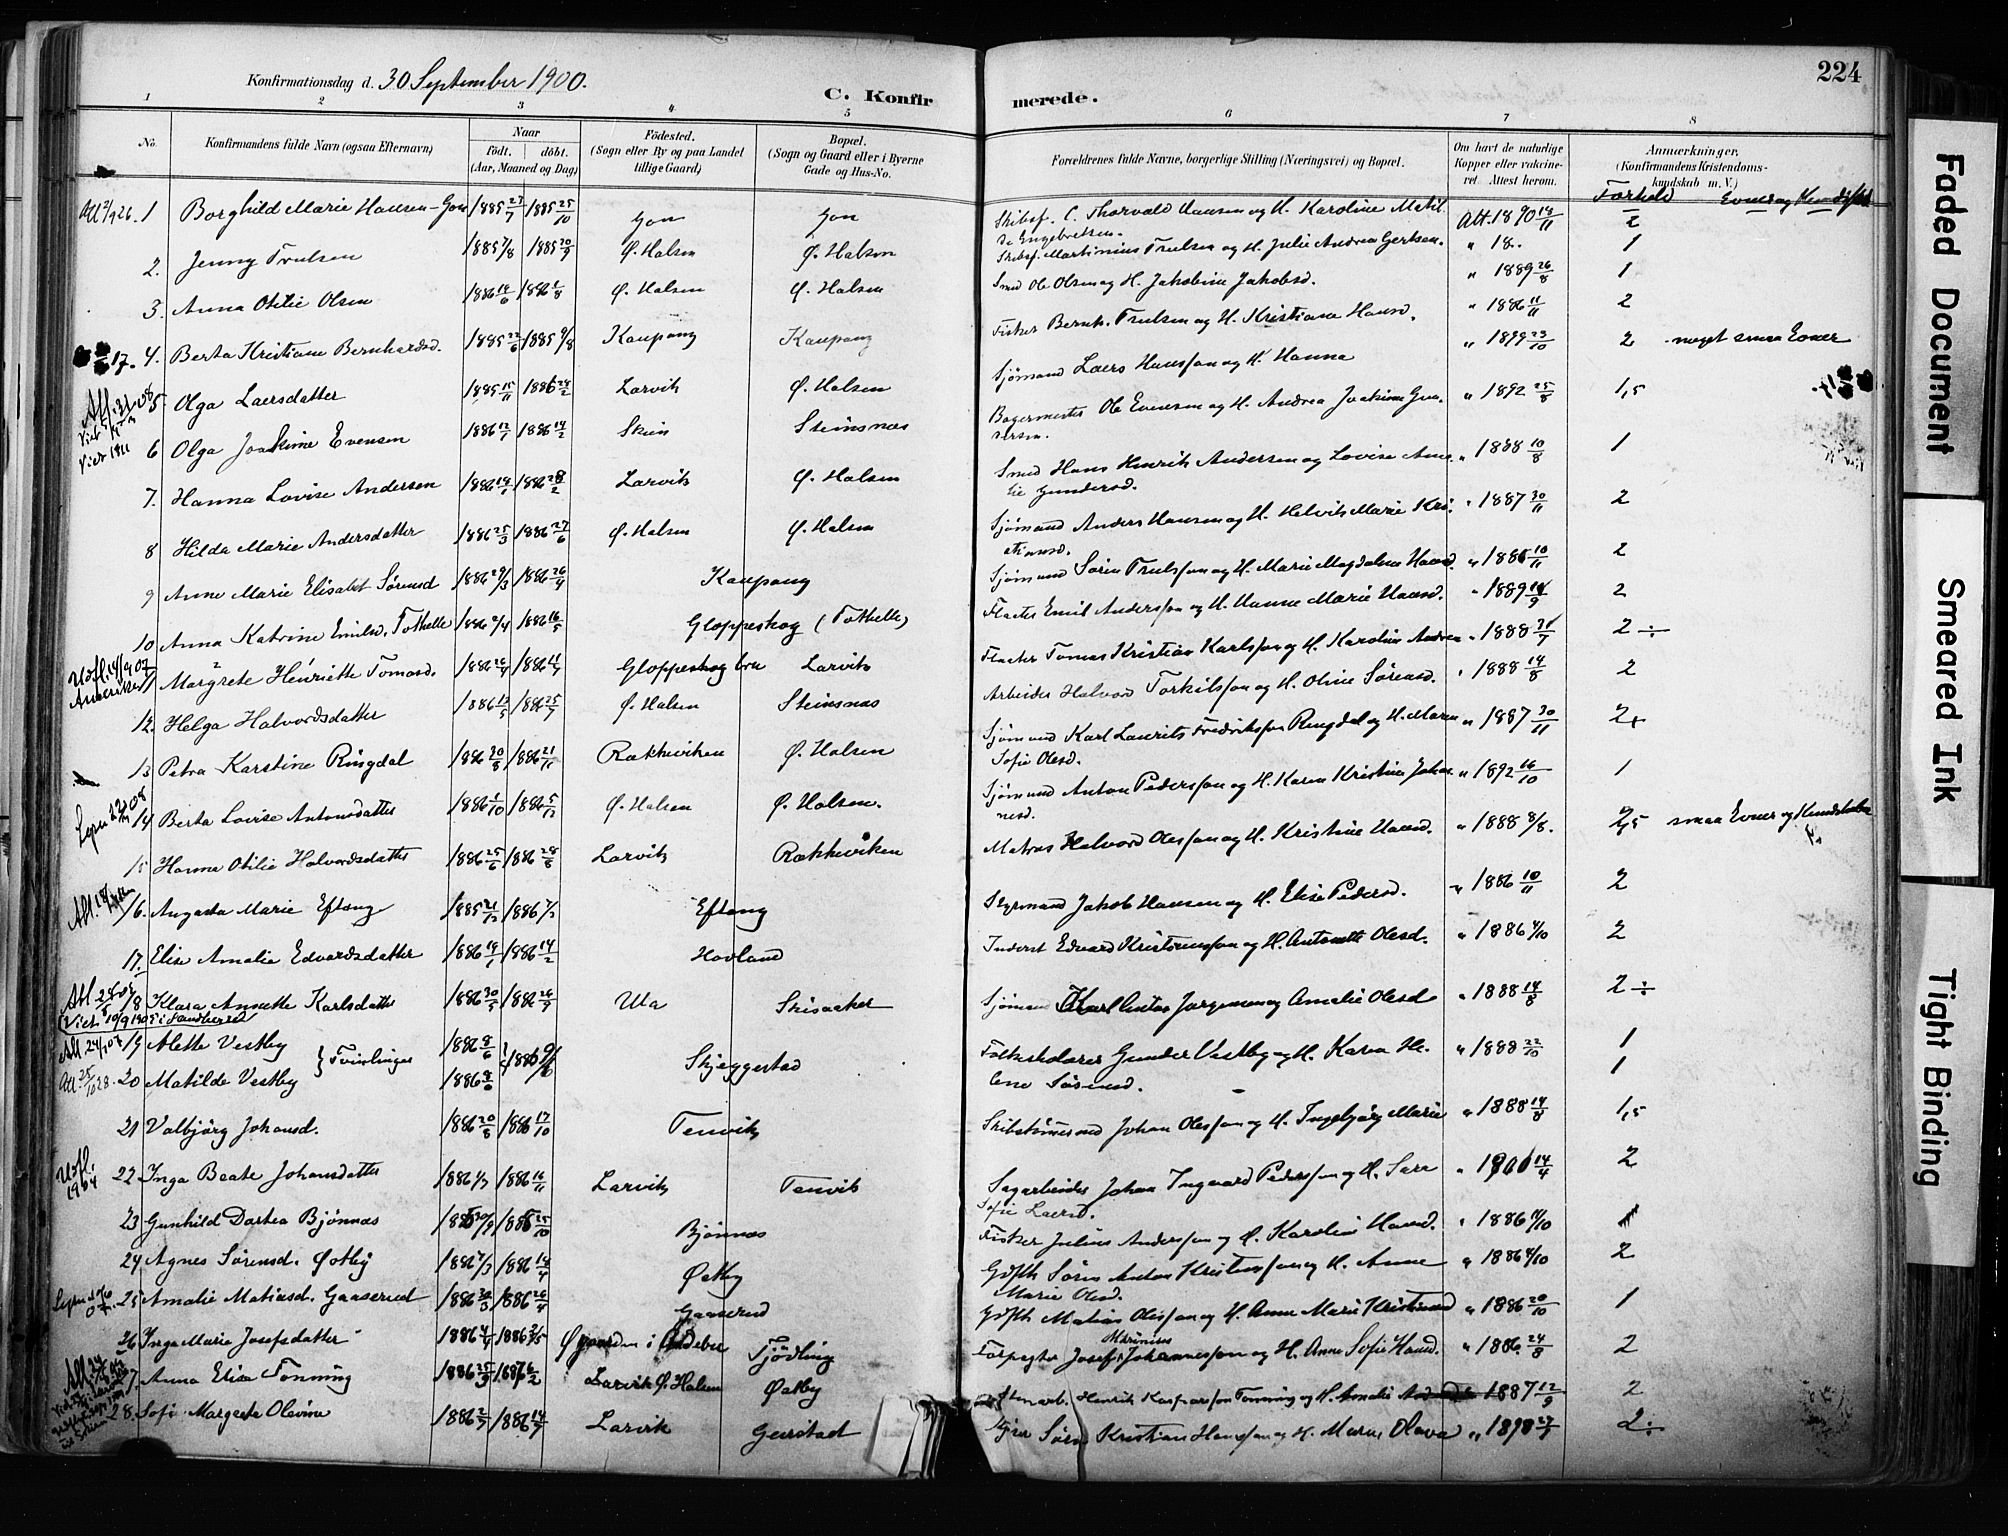 Konfirmationsdag d. 30 September 1900.
C. Konfirmerede.
224
1 2 3 4 5 6 7 8
No.
Konfirmandens fulde Navn (ogsaa Efternavn)
Naar
födt. döbt.
(Aar, Maaned og Dag)
Födested.
(Sogn eller By og paa Landet tillige Gaard)
Bopæl.
(Sogn og Gaard eller i Byerne Gade og Hus-No.
Forældrenes fulde Navne, borgerlige Stilling (Næringsvei) og Bopæl.
Om havt de naturlige Kopper eller vakcineret. Attest herom.
Anmærkninger,
(Konfirmandens Kristendomskundskab m. V.)
Forhold Evner og Kundskab
1 Borghild Marie Hansen-Gon 1885 27/7 1885 25/10 Gon Gon Skibsf. C. Thorvald Hansen og H. Karoline Matilde Engebretsen. Att. 1890 18/11 2
2. Jenny Trulsen 1885 7/8 1885 20/9 Ø. Halsen Ø. Halsen Skibsf. Martinius Trulsen og H. Julie Andrea Gertsen. " 18. 1
3. Anna Otilie Olsen 1886 1886 1/8 Ø. Halsen Ø. Halsen Smed Ole Olsen og H. Jakobine Jakobsd. " 1889 26/8 1
4. Berta Kristiane Bernhardsd. 1885 22/6 1885 9/8 Kaupang Kaupang Fisker Bernh. Trulsen og H. Kristiane Hansd. " 1886 11/11 2
5 Olga Laersdatter 1885 15/11 1886 28/2 Larvik Ø. Halsen Sjømand Laers Hansson og H. Hanna " 1899 23/10 2 meget smaa Evner
6 Olga Joakime Evensen 1886 12/1 1886 14/2 Skien Steinsnæs Bagermester Ole Evensen og H. Andrea Joakime Gundersen. " 1892 25/8 1,5
7. Hanna Lovise Andersen 1886 18/1 1886 28/2 Larvik Ø. Halsen Smed Hans Henrik Andersen og Lovise Amalie Gundersd. " 1888 10/8 1
8 Hilda Marie Andersdatter 1886 25/3 1886 27/6 Ø. Halsen Ø. Halsen Sjømand Anders Hansen og H. Helvik Marie Kristiansd. " 1887 30/11 2
9 Anne Marie Elisabet Sørensd 1886 29/3 1886 26/4 Kaupang Sjømand Søren Trulsson og H. Marie Magdalena Hansd. " 1886 10/11 2
10 Anna Katrine Emilsd. Tothelle 1886 2/4 1886 16/5 Gloppeskog (Tothelle) Flaater Emil Andersson og H. Hanne Marie Hansd. " 1889 2
11 Margrete Henriette Tomasd. 1886 1886 Gloppeskog bru Larvik Flaater Tomas Kristian Karlsson og H. Karoline Andrea " 1888 31/7 2 ÷
12. Helga Halvordsdatter 1886 13/5 1886 25/7 Ø. Halsen Steinsnæs Arbeider Halvord Torkilsson og H. Oline Sørensd. " 1888 14/8 2
13 Petra Karstine Ringdal 1886 30/8 1886 21/11 Rækkeviken Ø. Halsen Sjømand Karl Laurits Fredriksson Ringdal og H. Maren Sofie Olesd. " 1887 30/11 2+
14 Berta Lovise Antonsdatter 1886 1/10 1886 5/12 Ø. Halsen Ø. Halsen. Sjømand Anton Pedersson og H. Karen Kristine Johannesd. " 1892 16/10 1
15 Hanna Otilie Halvordsdatter 1886 25/6 1886 28/8 Larvik Rækkeviken Matros Halvord Olesson og H. Kristine Hansd. " 1888 8/8. 2,5 smaa Evner og Kundskaber
16. Augusta Marie Eftang 1885 21/12 1886 7/2 Eftang Styrmand Jakob Hansen og H. Elise Pedersd. " 1886 10/11 2
17. Elise Amalie Edvardsdatter 1886 19/1 1886 14/2 Hovland Inderst Edvard Kristensson og H. Antonette Olesd. " 1886 4/10 2
18 Klara Annette Karlsdatter 1886 30/5 1886 Ula Skisaaker Sjømand Karl Anton Jørgensen og Amalie Olesd " 1888 14/8 2 ÷
19 Alette Vestby } Tvillinger 1886 8/6 Skjeggestad Folkeskolærer Gunder Vestby og H. Karen Helene Sørensd. " 1888 22/10 1
20 Matilde Vestby 1886 1
21 Valbjörg Johansd. 1886 20/8 1886 17/10 Tenvik Skibstömmermand Johan Olesson og H. Ingebjörg Marie " 1888 14/8 1,5
22 Inga Beate Johansdatter 1886 1886 Larvik Tenvik Sagarbeider Johan Ingvard Pedersson og H. Sara Sofie Laersd. " 1900 14/4 2
23 Gunhild Dortea Bjönnæs 1885 1885 25/10 Bjönnæs Fisker Julius Andersson og H. Karoline Hansd. " 1886 4/10
24 Agnes Sörensd. Østby 1886 7/3 1886 18/4 Østby Gdfsth Sören Anton Kristensson og H. Anne Marie Olesd. " 1886 4/10 2
25 Amalie Matiasd. Gaaserud 1886 30/3 1886 26/4 Gaaserud Gdfsth Matias Olesson og H. Anne Marie Kristiansd " 1886 20/10 1
26 Inga Marie Josefsdatter 1886 4/4 1886 2/5 Øgaarden i Andebu Tjödling Forpagter Josef Marinius Johannesson og H. Anne Sofie Hansd. " 1886. 24/8 2
27. Anna Elise Tonning 1886 25/9 1887 6/2 Larvik Ø. Halsen Østby Henrik Kaspersson Tonning og H. Amalie " 1887 12/9 2
28. Sofie Margrete Olevine 1886 2/7 1886 Larvik Geirstad Sören Kristian Hansson og H. Maren Olava " 1898 2 ÷
Faded Document
Smeared Ink
Tight Binding